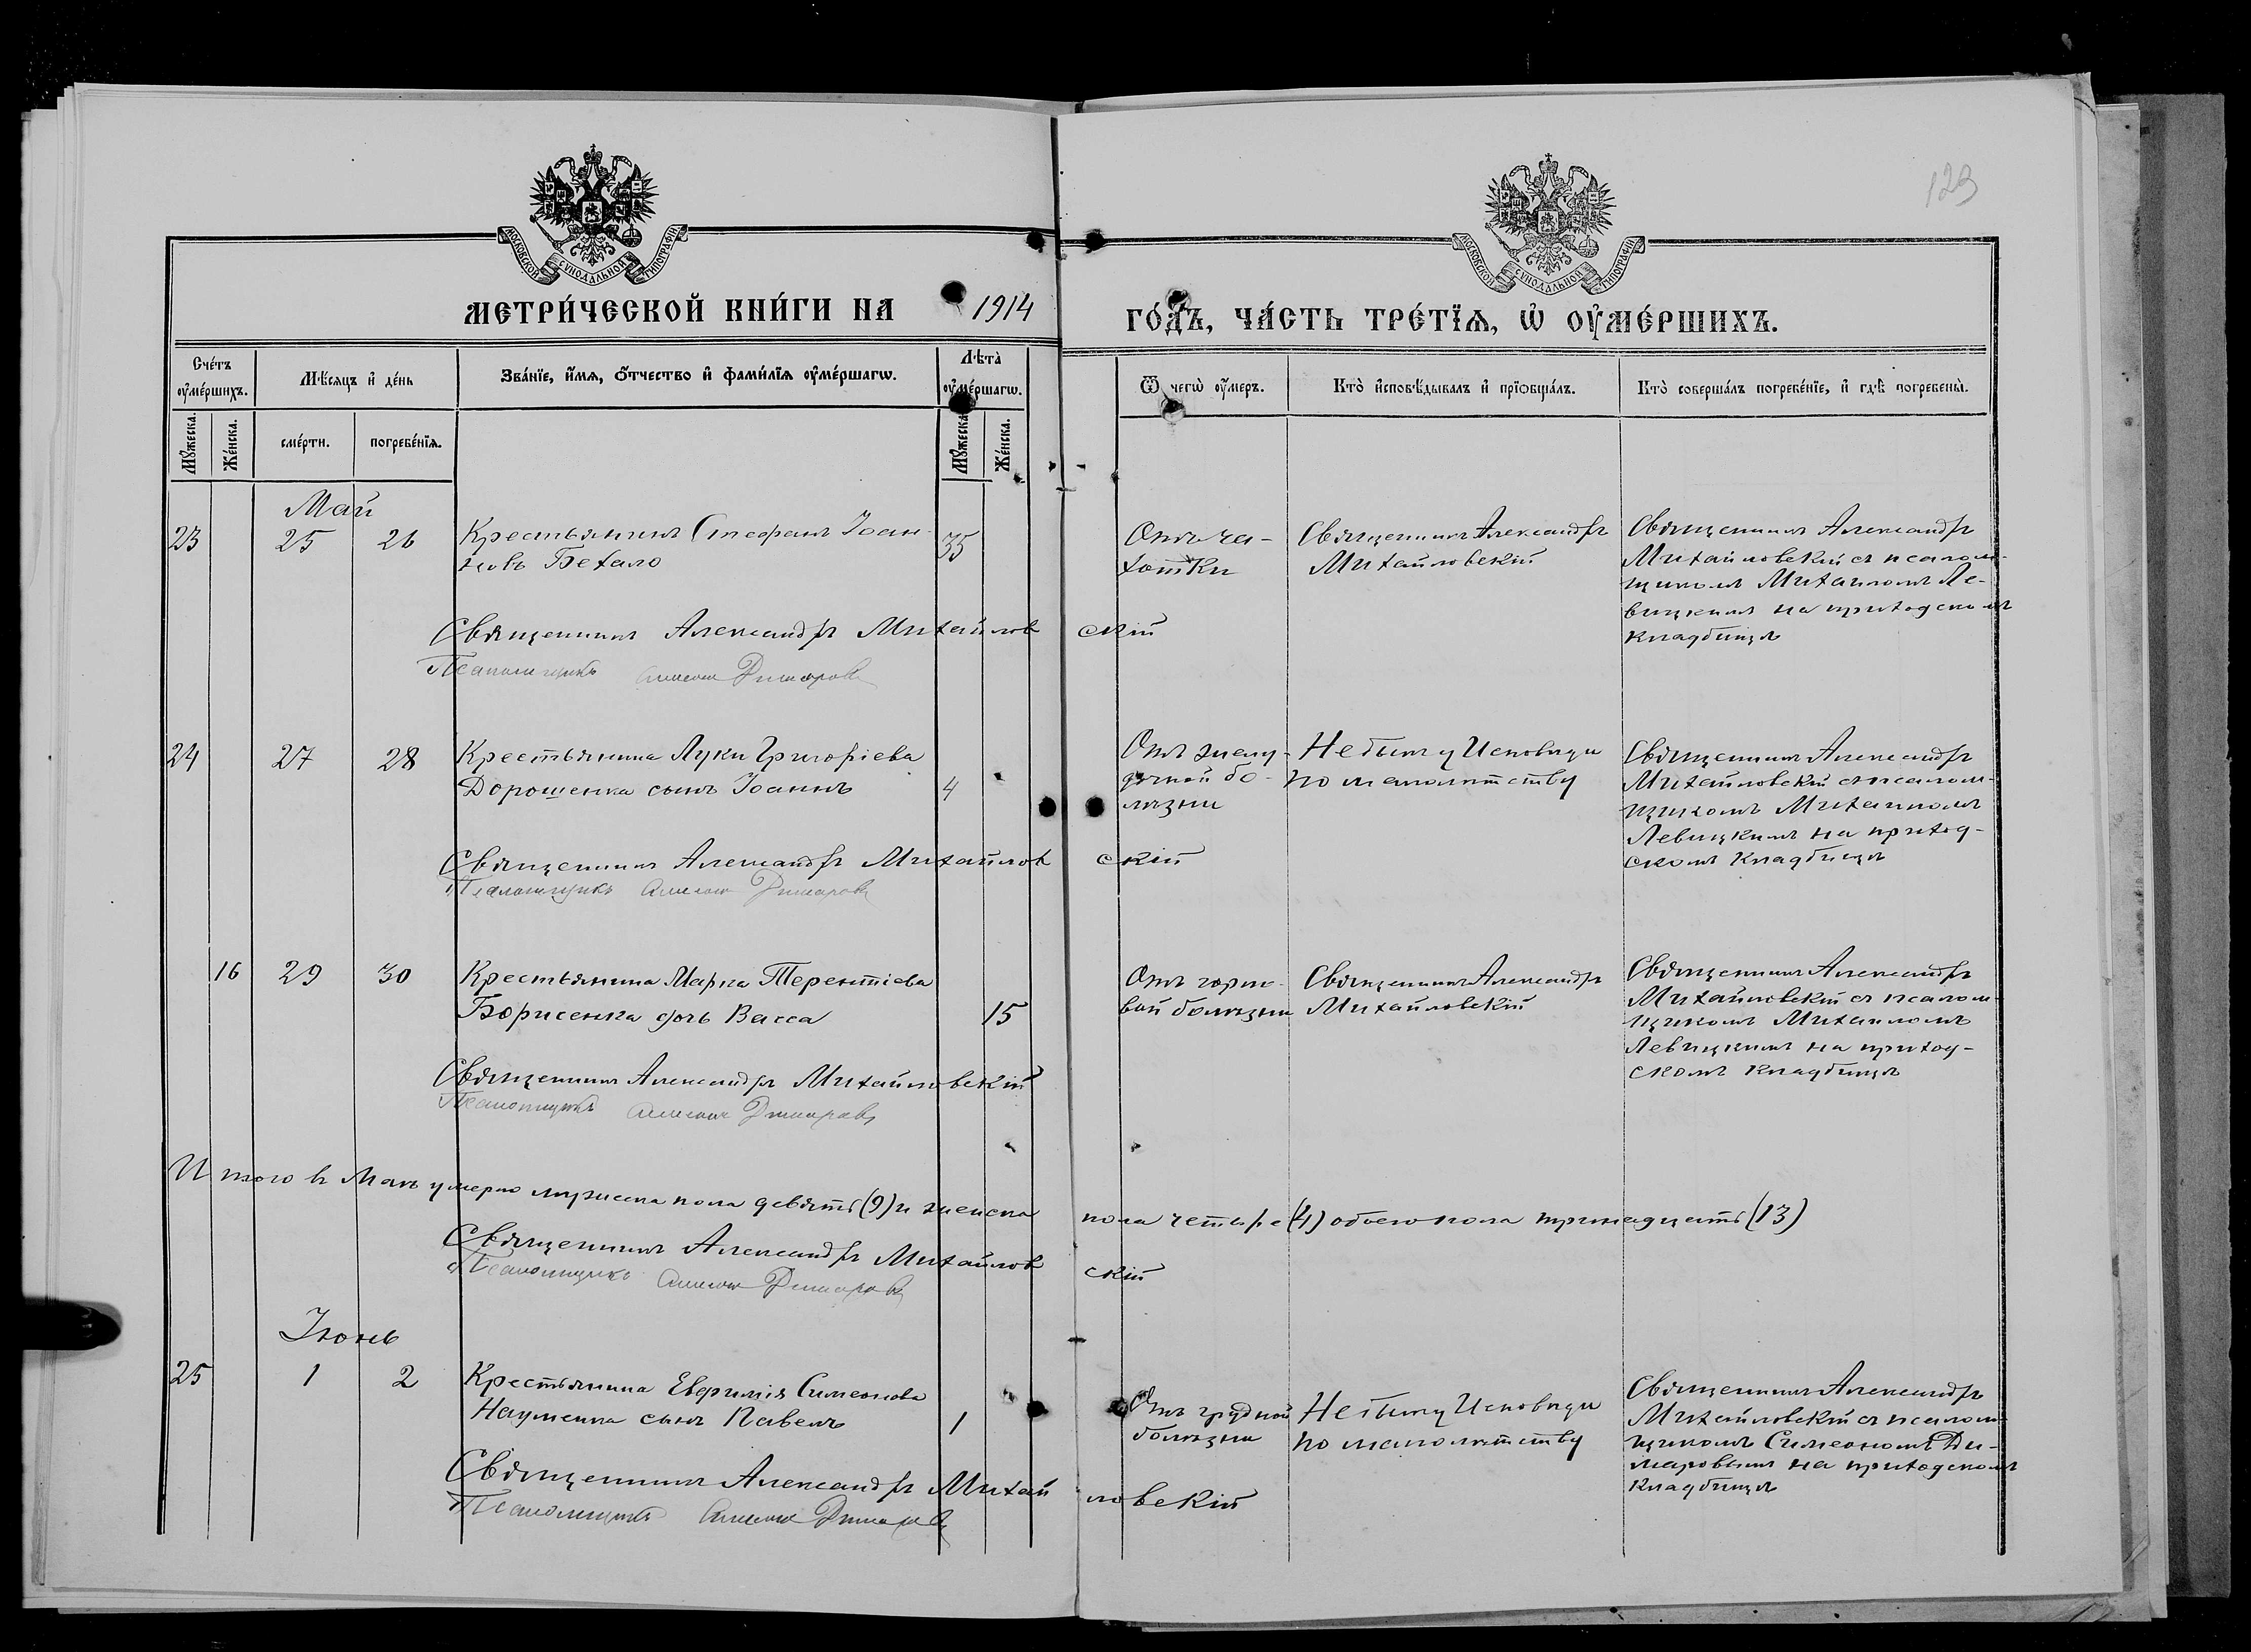 129
МОСКОВСКОЙ СѴНОДАЛЬНОЙ ТИПОГРАФІИ
МОСКОВСКОЙ СѴНОДАЛЬНОЙ ТИПОГРАФІИ
МЕТРИ́ЧЕСКОЙ КНИ́ГИ НА 1914 ГО́ДЪ, ЧА́СТЬ ТРЕ́ТЇѦ, Ѡ҆ ОУ҆МЕ́РШИХЪ.
Сче́тъ оу҆ме́ршихъ.
Мѣ́сяцъ и҆ де́нь
Зва́нїе, и҆́мѧ, ѻ҆́тчество и҆ фами́лїѧ оу҆ме́ршагѡ.
Лѣта̀ оу҆ме́ршагѡ.
Ѿ чегѡ̀ оу҆́меръ.
Кто̀ и҆сповѣ́дывалъ и҆ прїѡбща́лъ.
Кто̀ соверша́лъ погребе́нїе, и҆ гдѣ̀ погребены̀.
Мꙋ́жеска.
Же́нска.
сме́рти.
погребе́нїѧ.
Мꙋ́жеска.
Же́нска.
Май
23 25 26 Крестьянинъ Стефанъ Іоан-
новъ Бехало 35
Отъ ча-
хотки
Священникъ Александръ
Михайловскій
Священникъ Александръ
Михайловскій съ псалом-
щикомъ Михаиломъ Ле-
вицкимъ на приходскомъ
кладбищѣ
Священникъ Александръ Михайловскій
Псаломщикъ Симеонъ Димаровъ
24 27 28 Крестьянина Луки Григоріева
Дорошенка сынъ Іоаннъ 4
Отъ желу-
дочной бо-
лѣзни
Не былъ у Исповѣди
по малолѣтству
Священникъ Александръ
Михайловскій съ псалом-
щикомъ Михаиломъ
Левицкимъ на приход-
скомъ кладбищѣ
Священникъ Александръ Михайловскій
Псаломщикъ Симеонъ Димаровъ
16 29 30 Крестьянина Марка Терентіева
Борисенка дочь Васса 15
Отъ горло-
вой болѣзни
Священникъ Александръ
Михайловскій
Священникъ Александръ
Михайловскій съ псалом-
щикомъ Михаиломъ
Левицкимъ на приход-
скомъ кладбищѣ
Священникъ Александръ Михайловскій
Псаломщикъ Симеонъ Димаровъ
Итого въ Маѣ умерло мужеска пола девять (9) и женска пола четыре (4) обоего пола тринадцать (13)
Священникъ Александръ Михайловскій
Псаломщикъ Симеонъ Димаровъ
Іюнь
25 1 2 Крестьянина Евфимія Симеонова
Науменка сынъ Павелъ 1
Отъ грудной
болѣзни
Не былъ у Исповѣди
по малолѣтству
Священникъ Александръ
Михайловскій съ псалом-
щикомъ Симеономъ Ди-
маровымъ на приходскомъ
кладбищѣ
Священникъ Александръ Михайловскій
Псаломщикъ Симеонъ Димаровъ